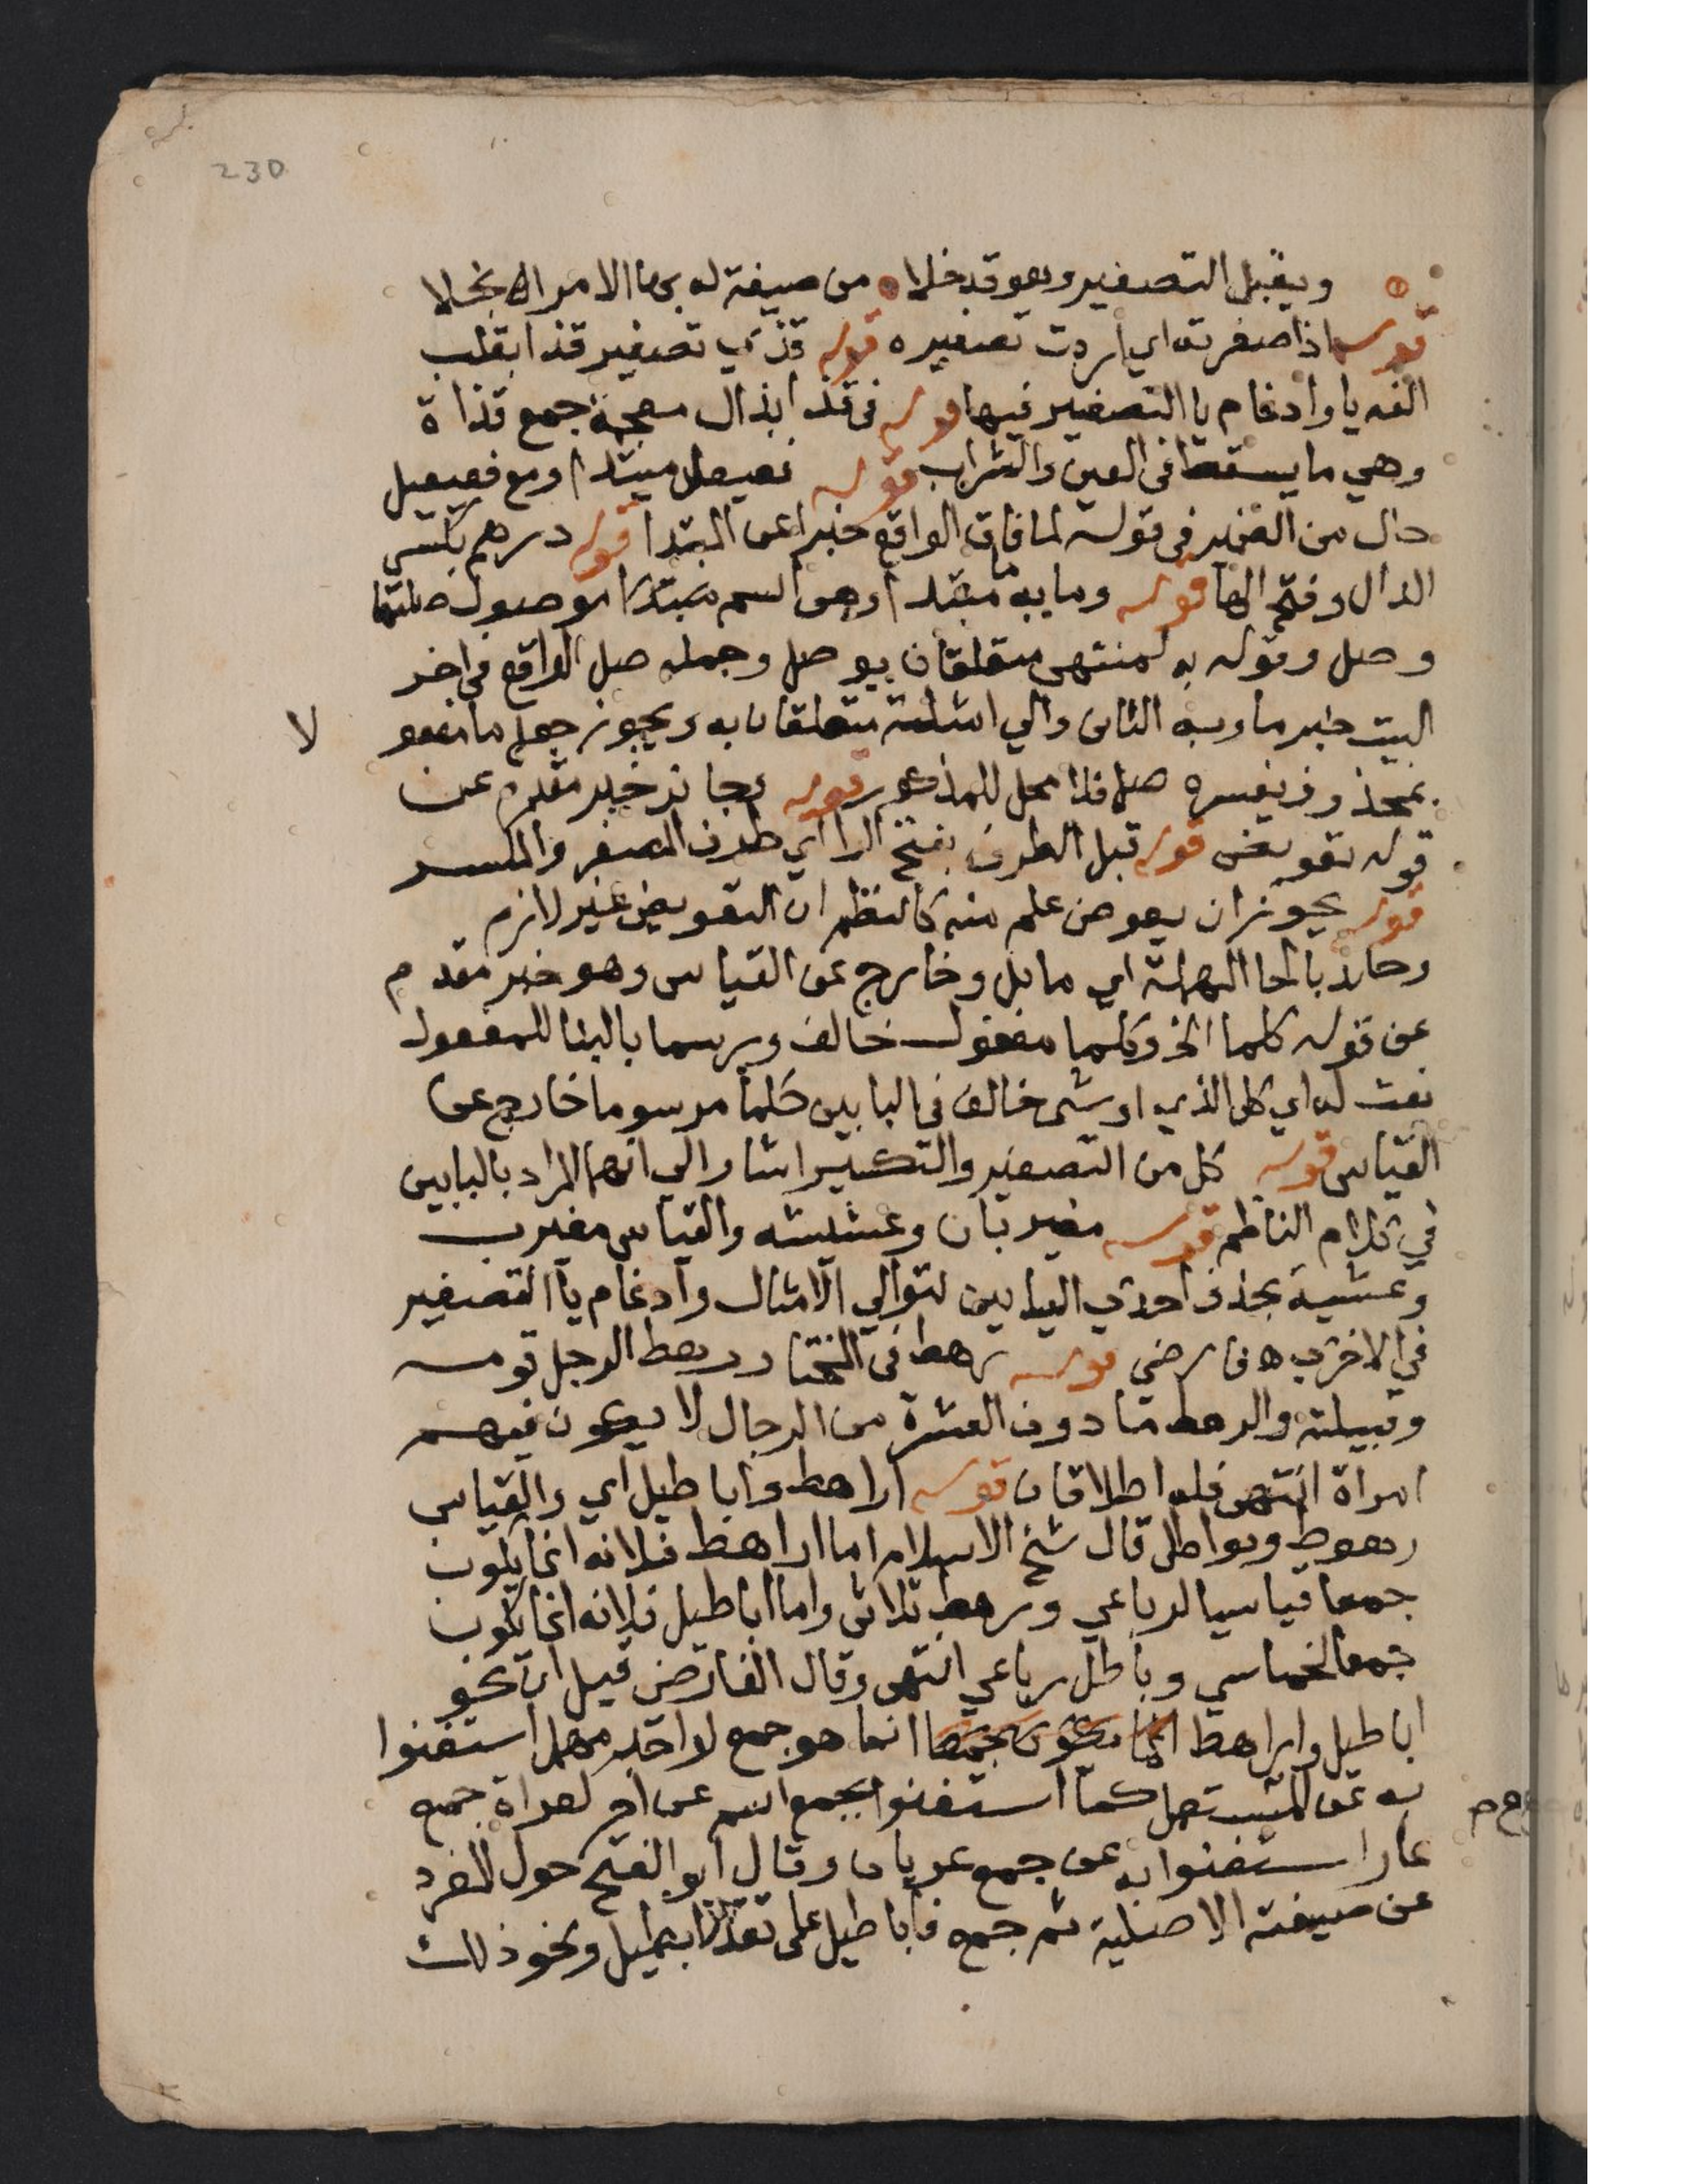 230
ويقبل التصغير وهو قد خلا ه من صيغة له بها الامر انجلا
قوله اذا صغرته اي اردت تصغيره قوله قذي تصغير قذا بقلب
الفه يا وادغام يا التصغير فيها قوله في قذا بذال معجمة جمع قذاة
وهي ما يسقط في العين والشراب قوله فعيعل مبتدا ومع فعيعيل
حال من الضمير في قوله لما فاق الواقع خبرا عن المبتدا قوله درهم بكسر
الدال وفتح الها قوله وما به مبتدا وهي اسم مبتدا موصول صلتها
وصل وقوله به لمنتهى متعلقان بوصل وجملة صل الواقع في اخر
البيت خبر ما وبه الثاني والي امثلة متعلقان به ويجوز جعل ما مفعو
لا
بمحذوف يفسره صل فلا محل للمذكور قوله وجائز خبر مقدم عن
قوله تعويض قوله قبل الطرف بفتح الرا اي طرف المصغر والمكسر
قوله يجوز ان يعوض علم منه كالنظم ان التعويض غير لازم
وحائد بالحا المهملة اي مايل وخارج عن القياس وهو خبر مقدم
عن قوله كلما الخ وكلما مفعول خالف ورسما بالبنا للمفعول
نعت له اي كل الذي او شي خالف في البابين حكما مرسوما خارج عن
القياس قوله كل من التصغير والتكسير اشار الي انهما المراد بالبابين
في كلام الناظم قوله مغيربان وعشيشه والقياس مغيرب
وعشية بحذف احدي اليايين لتوالي الامثال وادغام يا التصغير
في الاخرى ه فارضي قوله رهط في المختار رهط الرجل قومه
وقبيلته والرهط ما دون العشرة من الرجال لا يكون فيهم
امراة انتهى فله اطلاقان قوله اراهط واباطيل اي والقياس
رهوط وبواطل قال شيخ الاسلام اما اراهط فلانه انما يكون
جمعا قياسيا لرباعي ورهط ثلاثي واما اباطيل فلانه انما يكون
جمعا لخماسي وباطل رباعي انتهى وقال الفارضي قيل ان نحو
اباطيل واراهط انما يكون جمعا انما هو جمع لواحد مهمل استغنوا
به عن المستعمل كما استغنوا بجمع اسم عن اخر لعراة جمع
عار استغنوا به عن جمع عريان وقال ابو الفتح حول المفرد
عن صيغته الاصلية ثم جمع فاباطيل على تقدير ابطيل ونحو ذلك